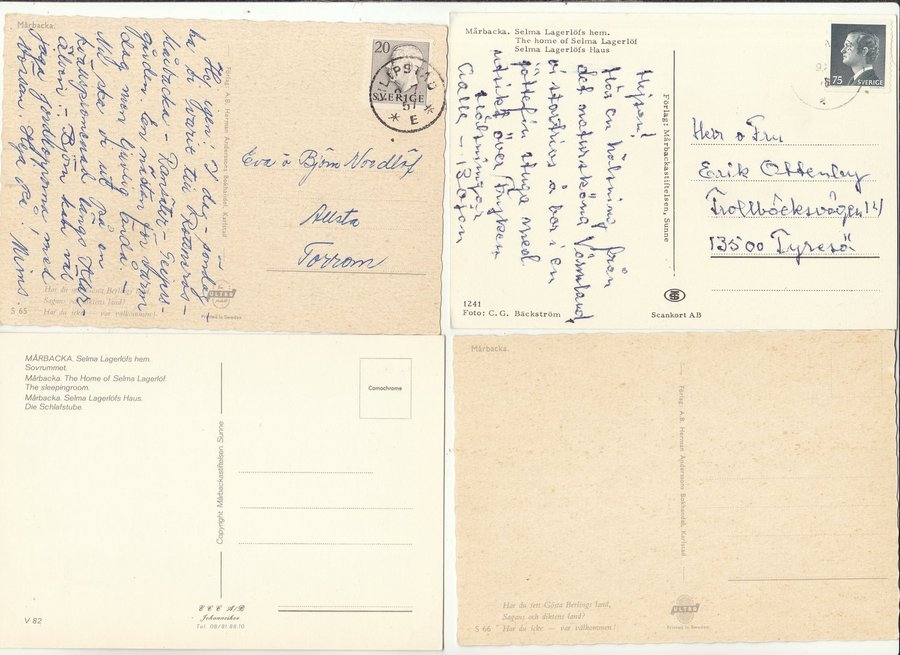 Mårbacka.
Hej igen! I dag - söndag -
ha vi varit till Rottneros -
Mårbacka - Ransäter - Geijers-
gården. En mästerför varm
dag men ljuvlig ändå. -
Nu ska vi ut på en
längs Klar-
älven. - Björn kan väl
jaga jordlopporna med
Hej då! Mims.
Förlag: A.B. Herman Anderssons Bokhandel, Karlstad
20
SVERIGE
FILIPSTAD
57
* E *
Eva o Björn Nordlöf
Allsta
Torrom
Har du sett Gösta Berlings land,
Sagans och diktens land?
Har du icke — var välkommen!
S 65
ULTRA
Printed in Sweden
Mårbacka. Selma Lagerlöfs hem.
The home of Selma Lagerlöf
Selma Lagerlöfs Haus
75
SVERIGE
Hejsan!
Här en hälsning från
det natursköna Värmland,
vi stortrivs å bor i en
jättefin stuga med
utsikt över Fryken
Hälsningar
Calle - Bojan
Förlag: Mårbackastiftelsen, Sunne
Herr o Fru
Erik Ottenby
Trollbäcksvägen 14
13500 Tyresö
1241
Foto: C. G. Bäckström
Scankort AB
MÅRBACKA. Selma Lagerlöfs hem.
Sovrummet.
Mårbacka. The Home of Selma Lagerlöf.
The sleepingroom.
Mårbacka. Selma Lagerlöfs Haus.
Die Schlafstube.
Comochrome
Copyright: Mårbackastiftelsen, Sunne
V 82
E C C A/B
Johanneshov
Tel. 08/81 88 10
Mårbacka.
Förlag: A.B. Herman Anderssons Bokhandel, Karlstad
Har du sett Gösta Berlings land,
Sagans och diktens land?
Har du icke — var välkommen!
S 66
ULTRA
Printed in Sweden